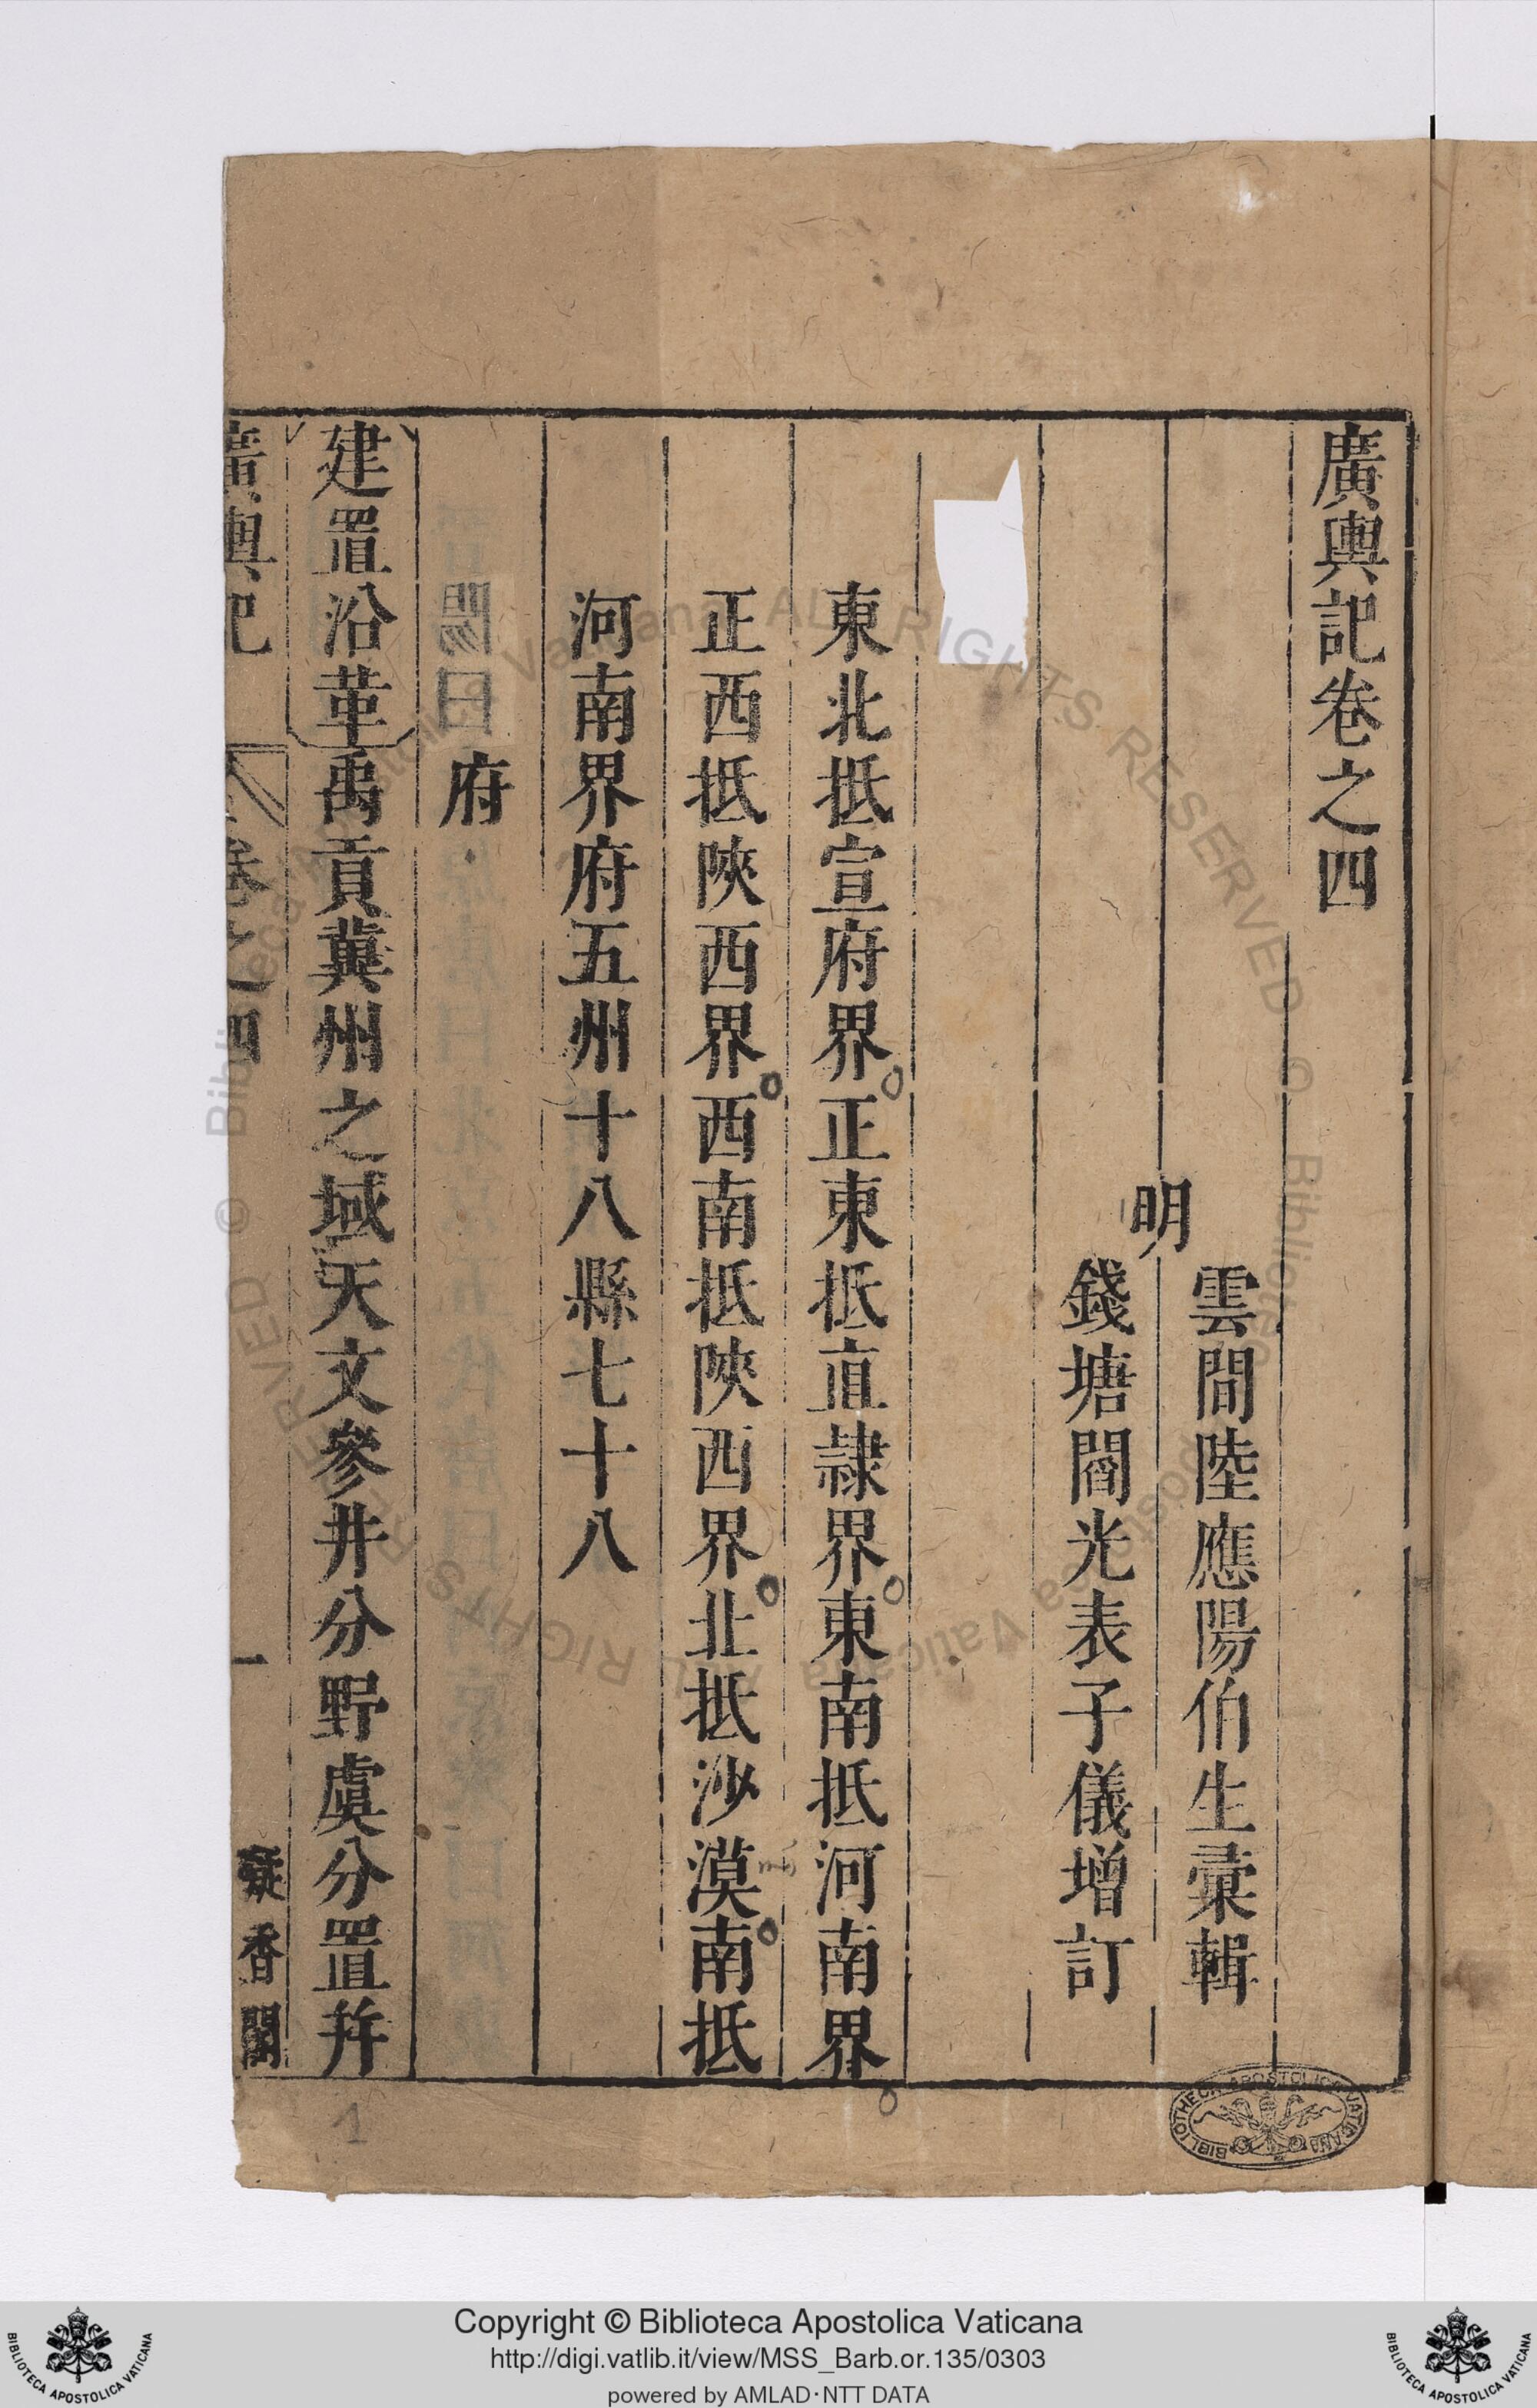 廣輿記卷之四
雲間陸應陽伯生彙輯
明
錢塘閻光表子儀增訂
東北抵宣府界正東抵直隷界東南抵河南界
正西抵陝西界西南抵陝西界北抵沙漠南抵
河南界府五州十八縣七十八
府
建置沿革禹貢冀州之域天文參井分野虞分置幷
廣輿記 卷之四 一 凝香閣
1
BIBLIOTHECA APOSTOLICA VATICANA
© Biblioteca Apostolica Vaticana ALL RIGHTS RESERVED
© Biblioteca Apostolica Vaticana ALL RIGHTS RESERVED
Copyright © Biblioteca Apostolica Vaticana
http://digi.vatlib.it/view/MSS_Barb.or.135/0303
powered by AMLAD·NTT DATA
BIBLIOTECA APOSTOLICA VATICANA
BIBLIOTECA APOSTOLICA VATICANA